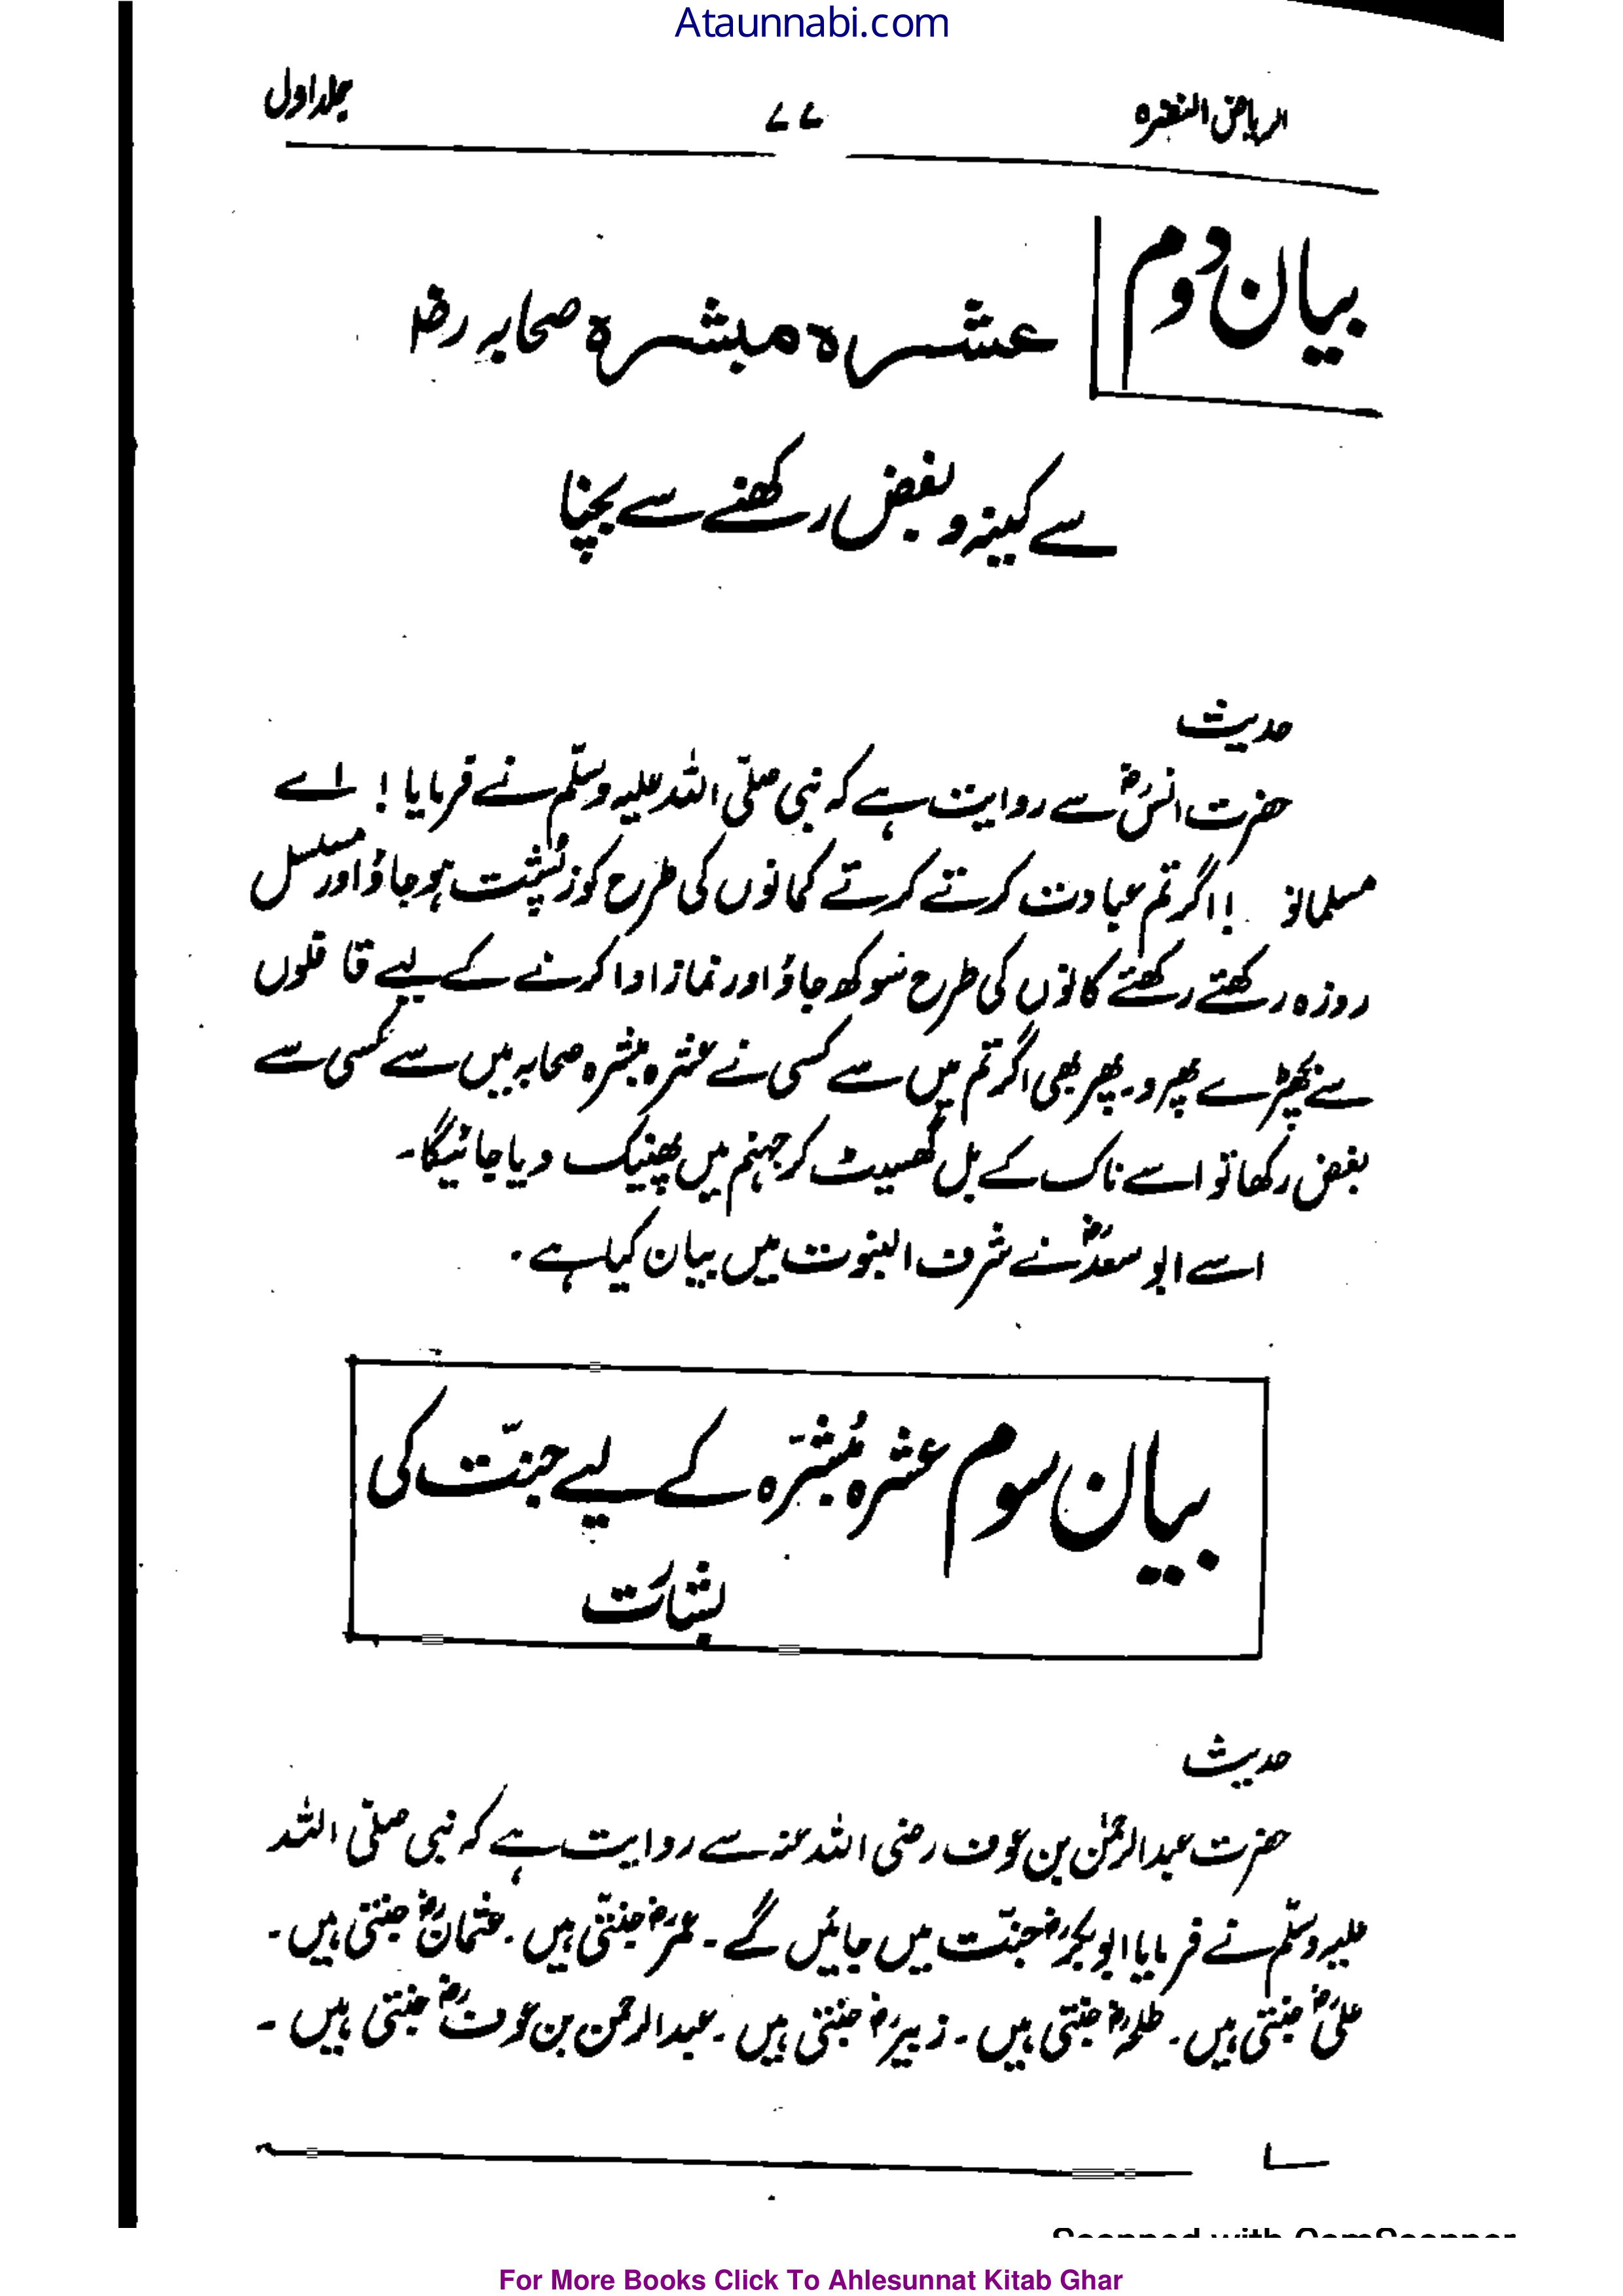 Ataunnabi.com
الریاض النضرہ
۷۷
جلد اول
بیان دوم
عشرہ مبشرہ صحابہ رضؓ
سے کینہ و بغض رکھنے سے بچنا
حدیث
حضرت انسؓ سے روایت ہے کہ نبی صلّی اللہ علیہ وسلّم نے فرمایا! اے
مسلمانو ! اگر تم عبادت کرتے کرتے کمانوں کی طرح کوزپُشت ہو جاؤ اور مسلسل
روزہ رکھتے رکھتے کانوں کی طرح سُوکھ جاؤ اور نماز ادا کرنے کے لیے قافلوں
سے بچھڑے پھرو۔ پھر بھی اگر تم میں سے کسی نے عشرہ مبشرہ صحابہ میں سے کسی سے
بغض رکھا تو اسے ناک کے بل گھسیٹ کر جہنم میں پھینک دیا جائیگا۔
اسے ابو سعدؓ نے شرف النبوت میں بیان کیا ہے۔
بیان سوم عشرہ مُبشّرہ کے لیے جنّت کی
بشارت
حدیث
حضرت عبدالرحمٰن بن عوف رضی اللہ عنہ سے روایت ہے کہ نبی صلّی اللہ
علیہ وسلّم نے فرمایا ابوبکرؓ جنّت میں جائیں گے۔ عمرؓ جنتی ہیں۔ عثمانؓ جنتی ہیں۔
علیؓ جنتی ہیں۔ طلحہؓ جنتی ہیں۔ زبیرؓ جنتی ہیں۔ عبدالرحمن بن عوفؓ جنتی ہیں۔
Scanned with CamScanner
For More Books Click To Ahlesunnat Kitab Ghar